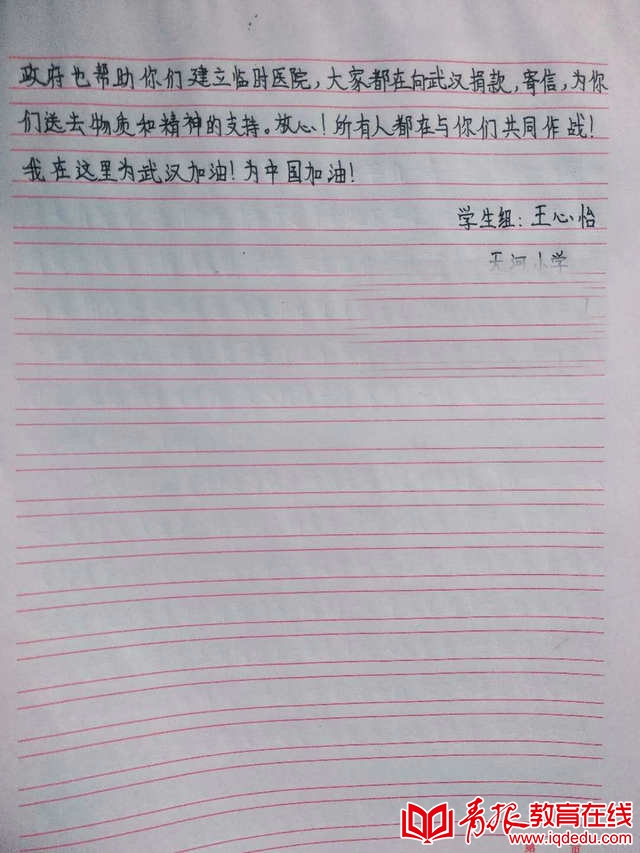 政府也帮助你们建立临时医院,大家都在向武汉捐款,寄信,为你
们送去物质和精神的支持。放心!所有人都在与你们共同作战!
我在这里为武汉加油!为中国加油!
学生组:王心怡
天河小学
青报教育在线
www.iqdedu.com
第 页